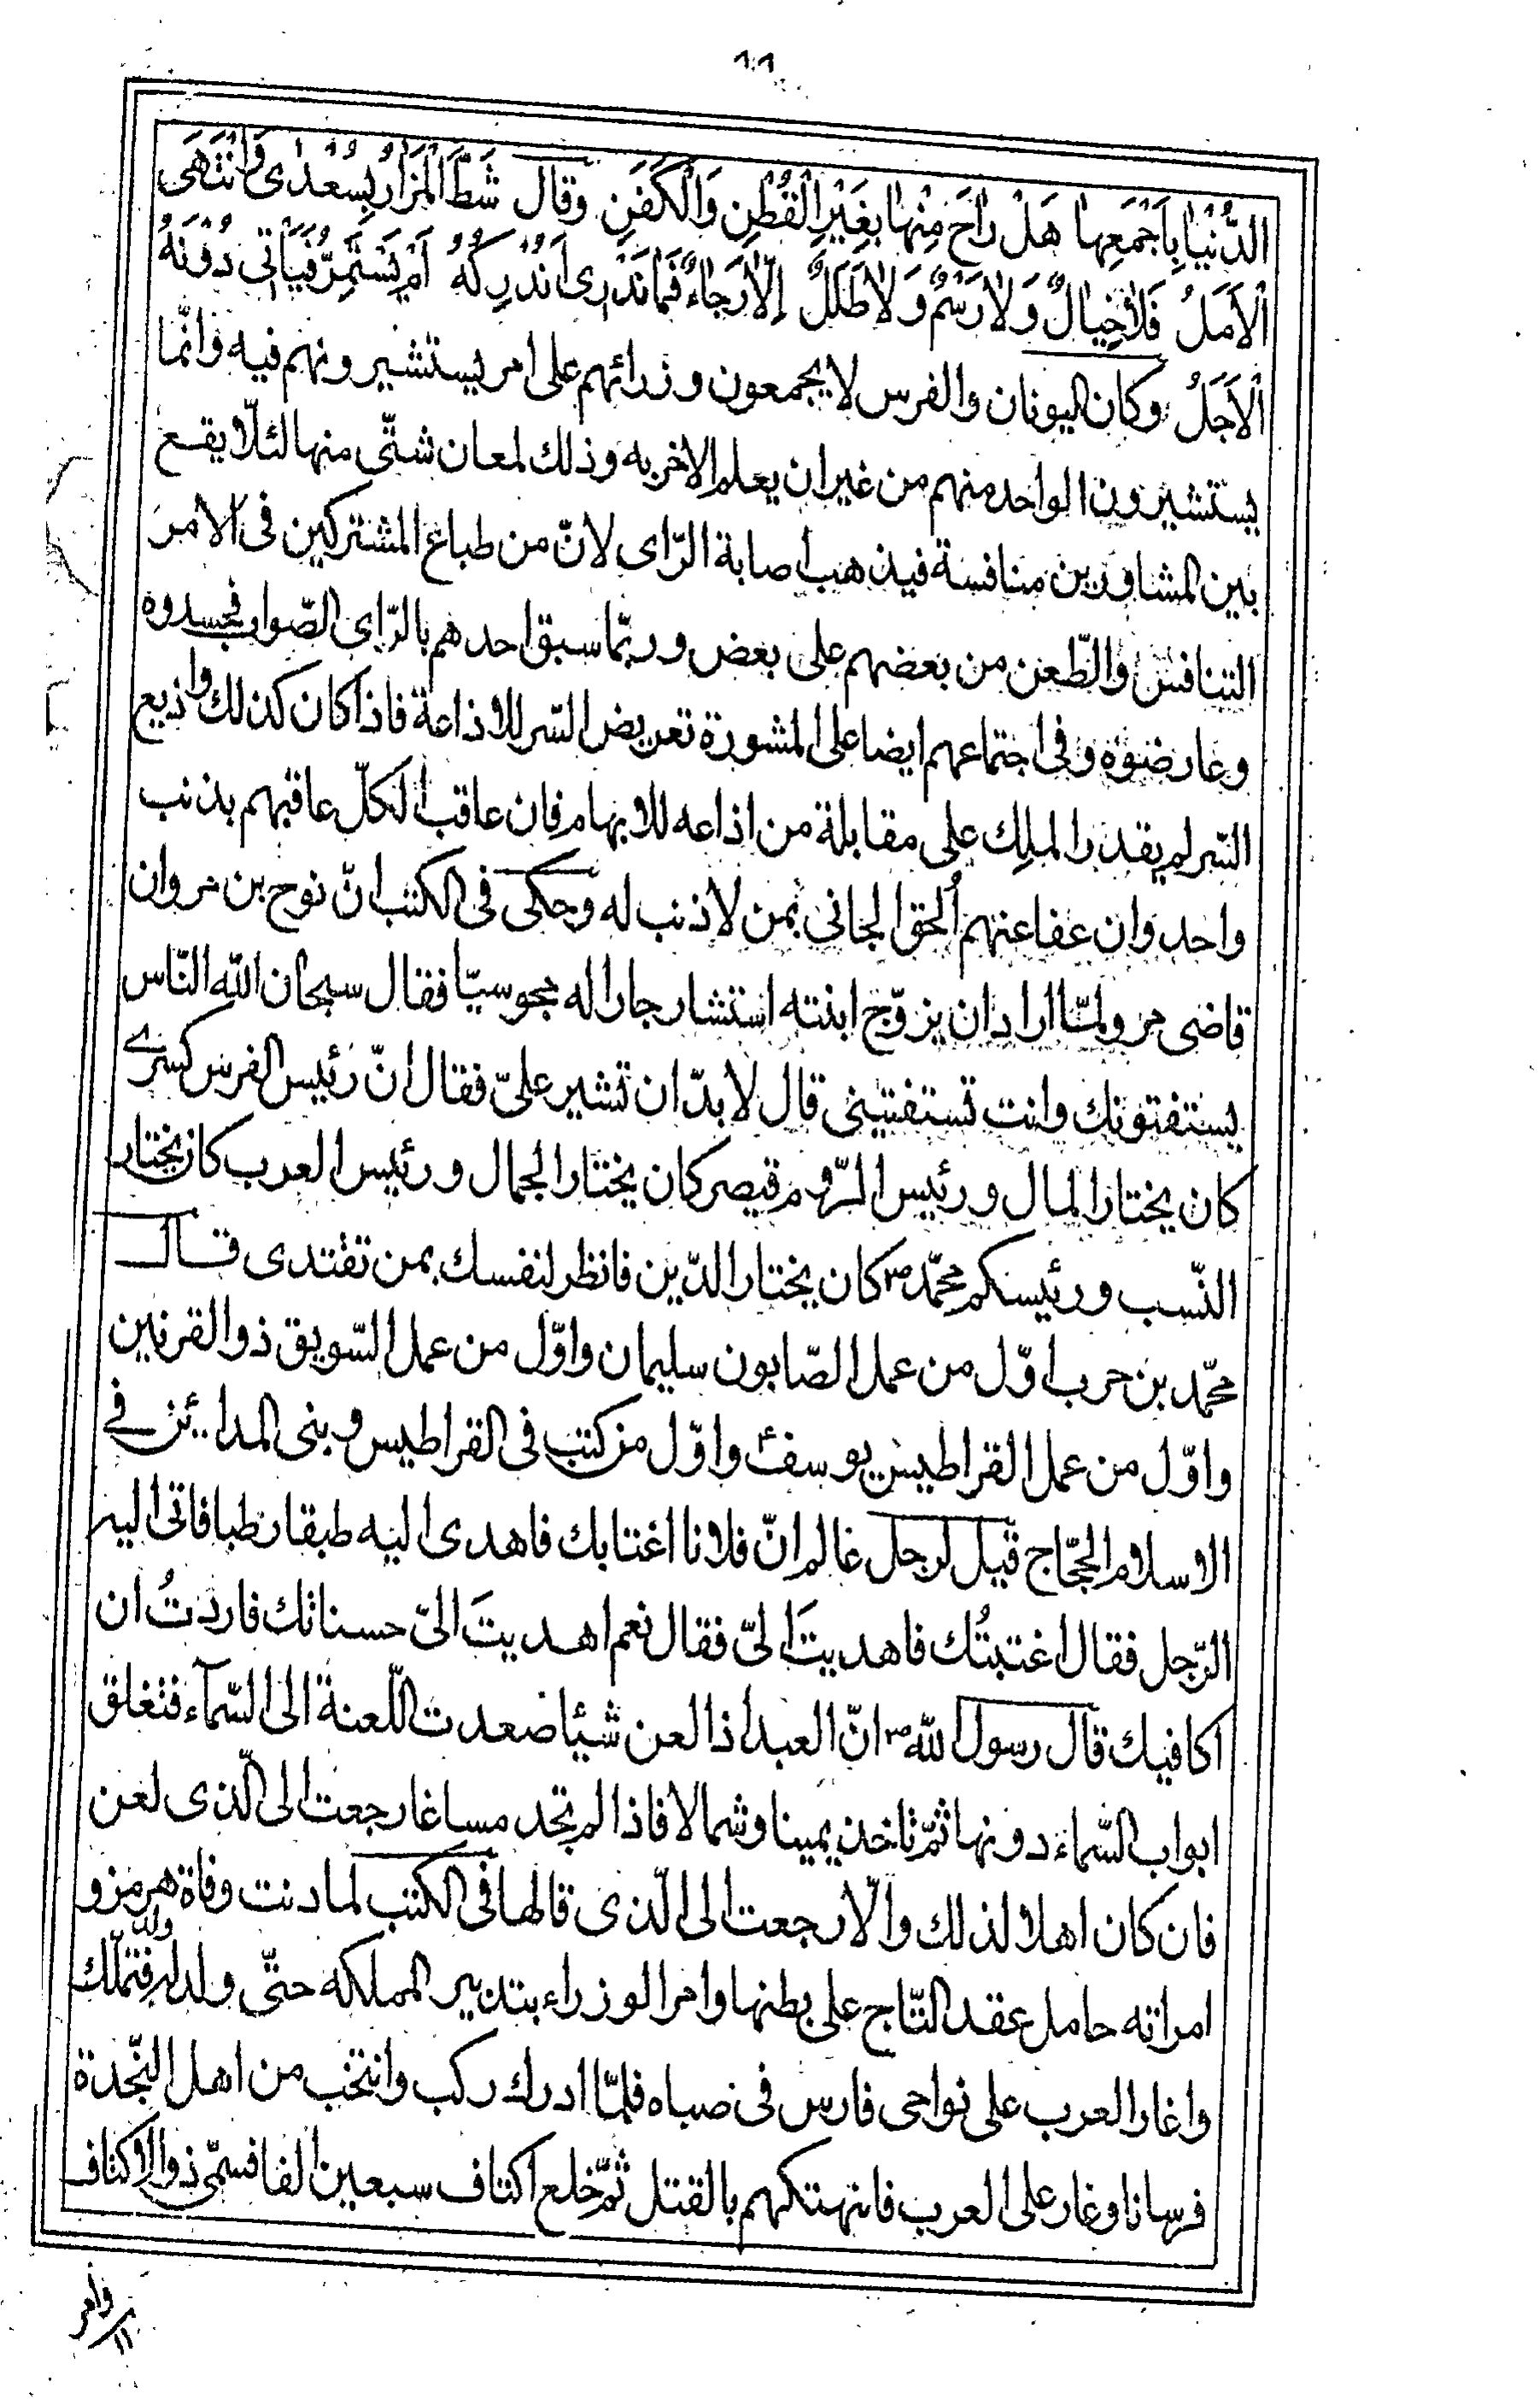 ١٠٦
الدُّنْيَا بِاَجْمَعِهَا هَلْ رَاحَ مِنْهَا بِغَيْرِ الْقُطْنِ وَالْكَفَنِ وقال شَطَّ الْمَزَارُ بِسُعْدٰى وَانْتَهَى
الْاَمَلُ فَلاٰ خَيٰالٌ وَلاٰ رَسْمٌ وَلاٰ طَلَلٌ اِلّاٰ رَجَاءٌ فَمَا نَدْرِى اَنُدْرِكُهُ اَمْ يَسْتَمِرُّ فَيَأْتِى دُوْنَهُ
الْاَجَلُ وكان اليونان والفرس لا يجمعون وزرائهم على امر يستشيرونهم فيه وانّما
يستشيرون الواحد منهم من غير ان يعلم الاخر به وذلك لمعان شتّى منها لئلّا يقع
بين المشاورين منافسة فيذهب اصابة الرّاى لانّ من طباع المشتركين فى الامر
التنافس والطّعن من بعضهم على بعض وربّما سبق احدهم بالرّاى الصّواب فحسدوه
وعارضوه وفى اجتماعهم ايضا على المشورة تعريض السّر للاذاعة فاذا كان كذلك واذيع
السّر لم يقدر الملك على مقابلة من اذاعه للابهام فان عاقب الكلّ عاقبهم بذنب
واحد وان عفا عنهم اُلحق الجانى بمن لا ذنب له وحكى فى الكتب انّ نوح بن مروان
قاضى مرو لمّا اراد ان يزوّج ابنته استشار جارا له مجوسيّا فقال سبحان الله النّاس
يستفتونك وانت تستفتينى قال لا بدّ ان تشير علىّ فقال انّ رئيس الفرس كسرى
كان يختار المال ورئيس الرّوم قيصر كان يختار الجمال ورئيس العرب كان يختار
النّسب ورئيسكم محمّد ص كان يختار الدّين فانظر لنفسك بمن تقتدى قال
محمّد بن حرب اوّل من عمل الصّابون سليمان واوّل من عمل السّويق ذو القرنين
واوّل من عمل القراطيس يوسف واوّل من كتب فى القراطيس وبنى المدائن فى
الاسلام الحجّاج قيل لرجل عالم انّ فلانا اغتابك فاهدى اليه طبقا رطبا فاتى اليه
الرّجل فقال اغتبتُك فاهديتَ الىّ فقال نعم اهديتَ الىّ حسناتك فاردتُ ان
اكافيك قال رسول الله ص انّ العبد اذا لعن شيئا صعدت اللّعنة الى السّمآء فتغلق
ابواب السّماء دونها ثمّ تاخذ يمينا وشمالا فاذا لم تجد مساغا رجعت الى الّذى لعن
فان كان اهلا لذلك والّا رجعت الى الّذى قالها فى الكتب لما دنت وفاة هرمز و
امراته حامل عقد التّاج على بطنها وامر الوزراء بتدبير المملكه حتّى ولد له ولد فتملّك
واغار العرب على نواحى فارس فى صباه فلمّا ادرك ركب وانتخب من اهل النّجدة
فرسانا وغار على العرب فانهتكهم بالقتل ثمّ خلع اكتاف سبعين الفا فسمّى ذو الاكتاف
وامر